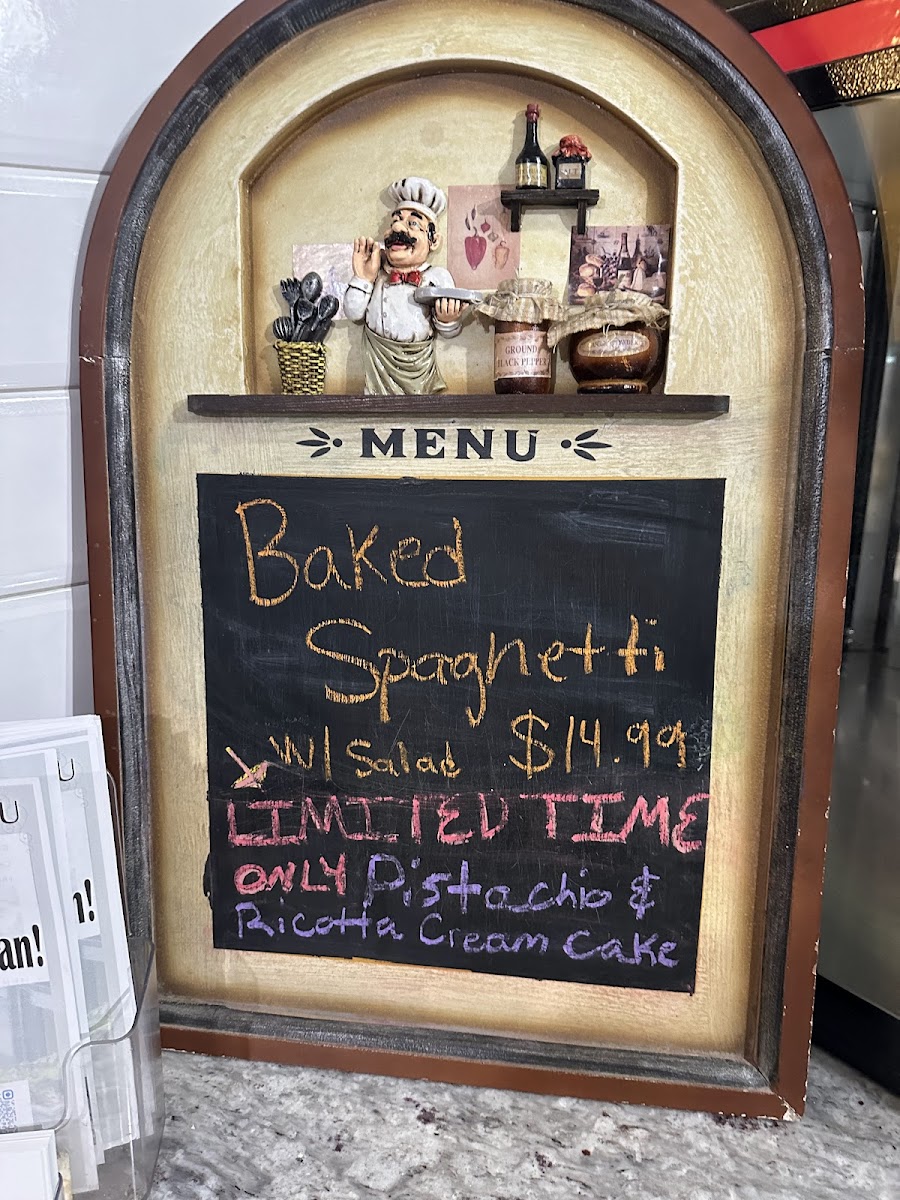 GROUND
BLACK PEPPER
MENU
Baked
Spaghetti
W/ Salad $14.99
LIMITED TIME
ONLY Pistachio &
Ricotta Cream Cake
U
U
n!
an!